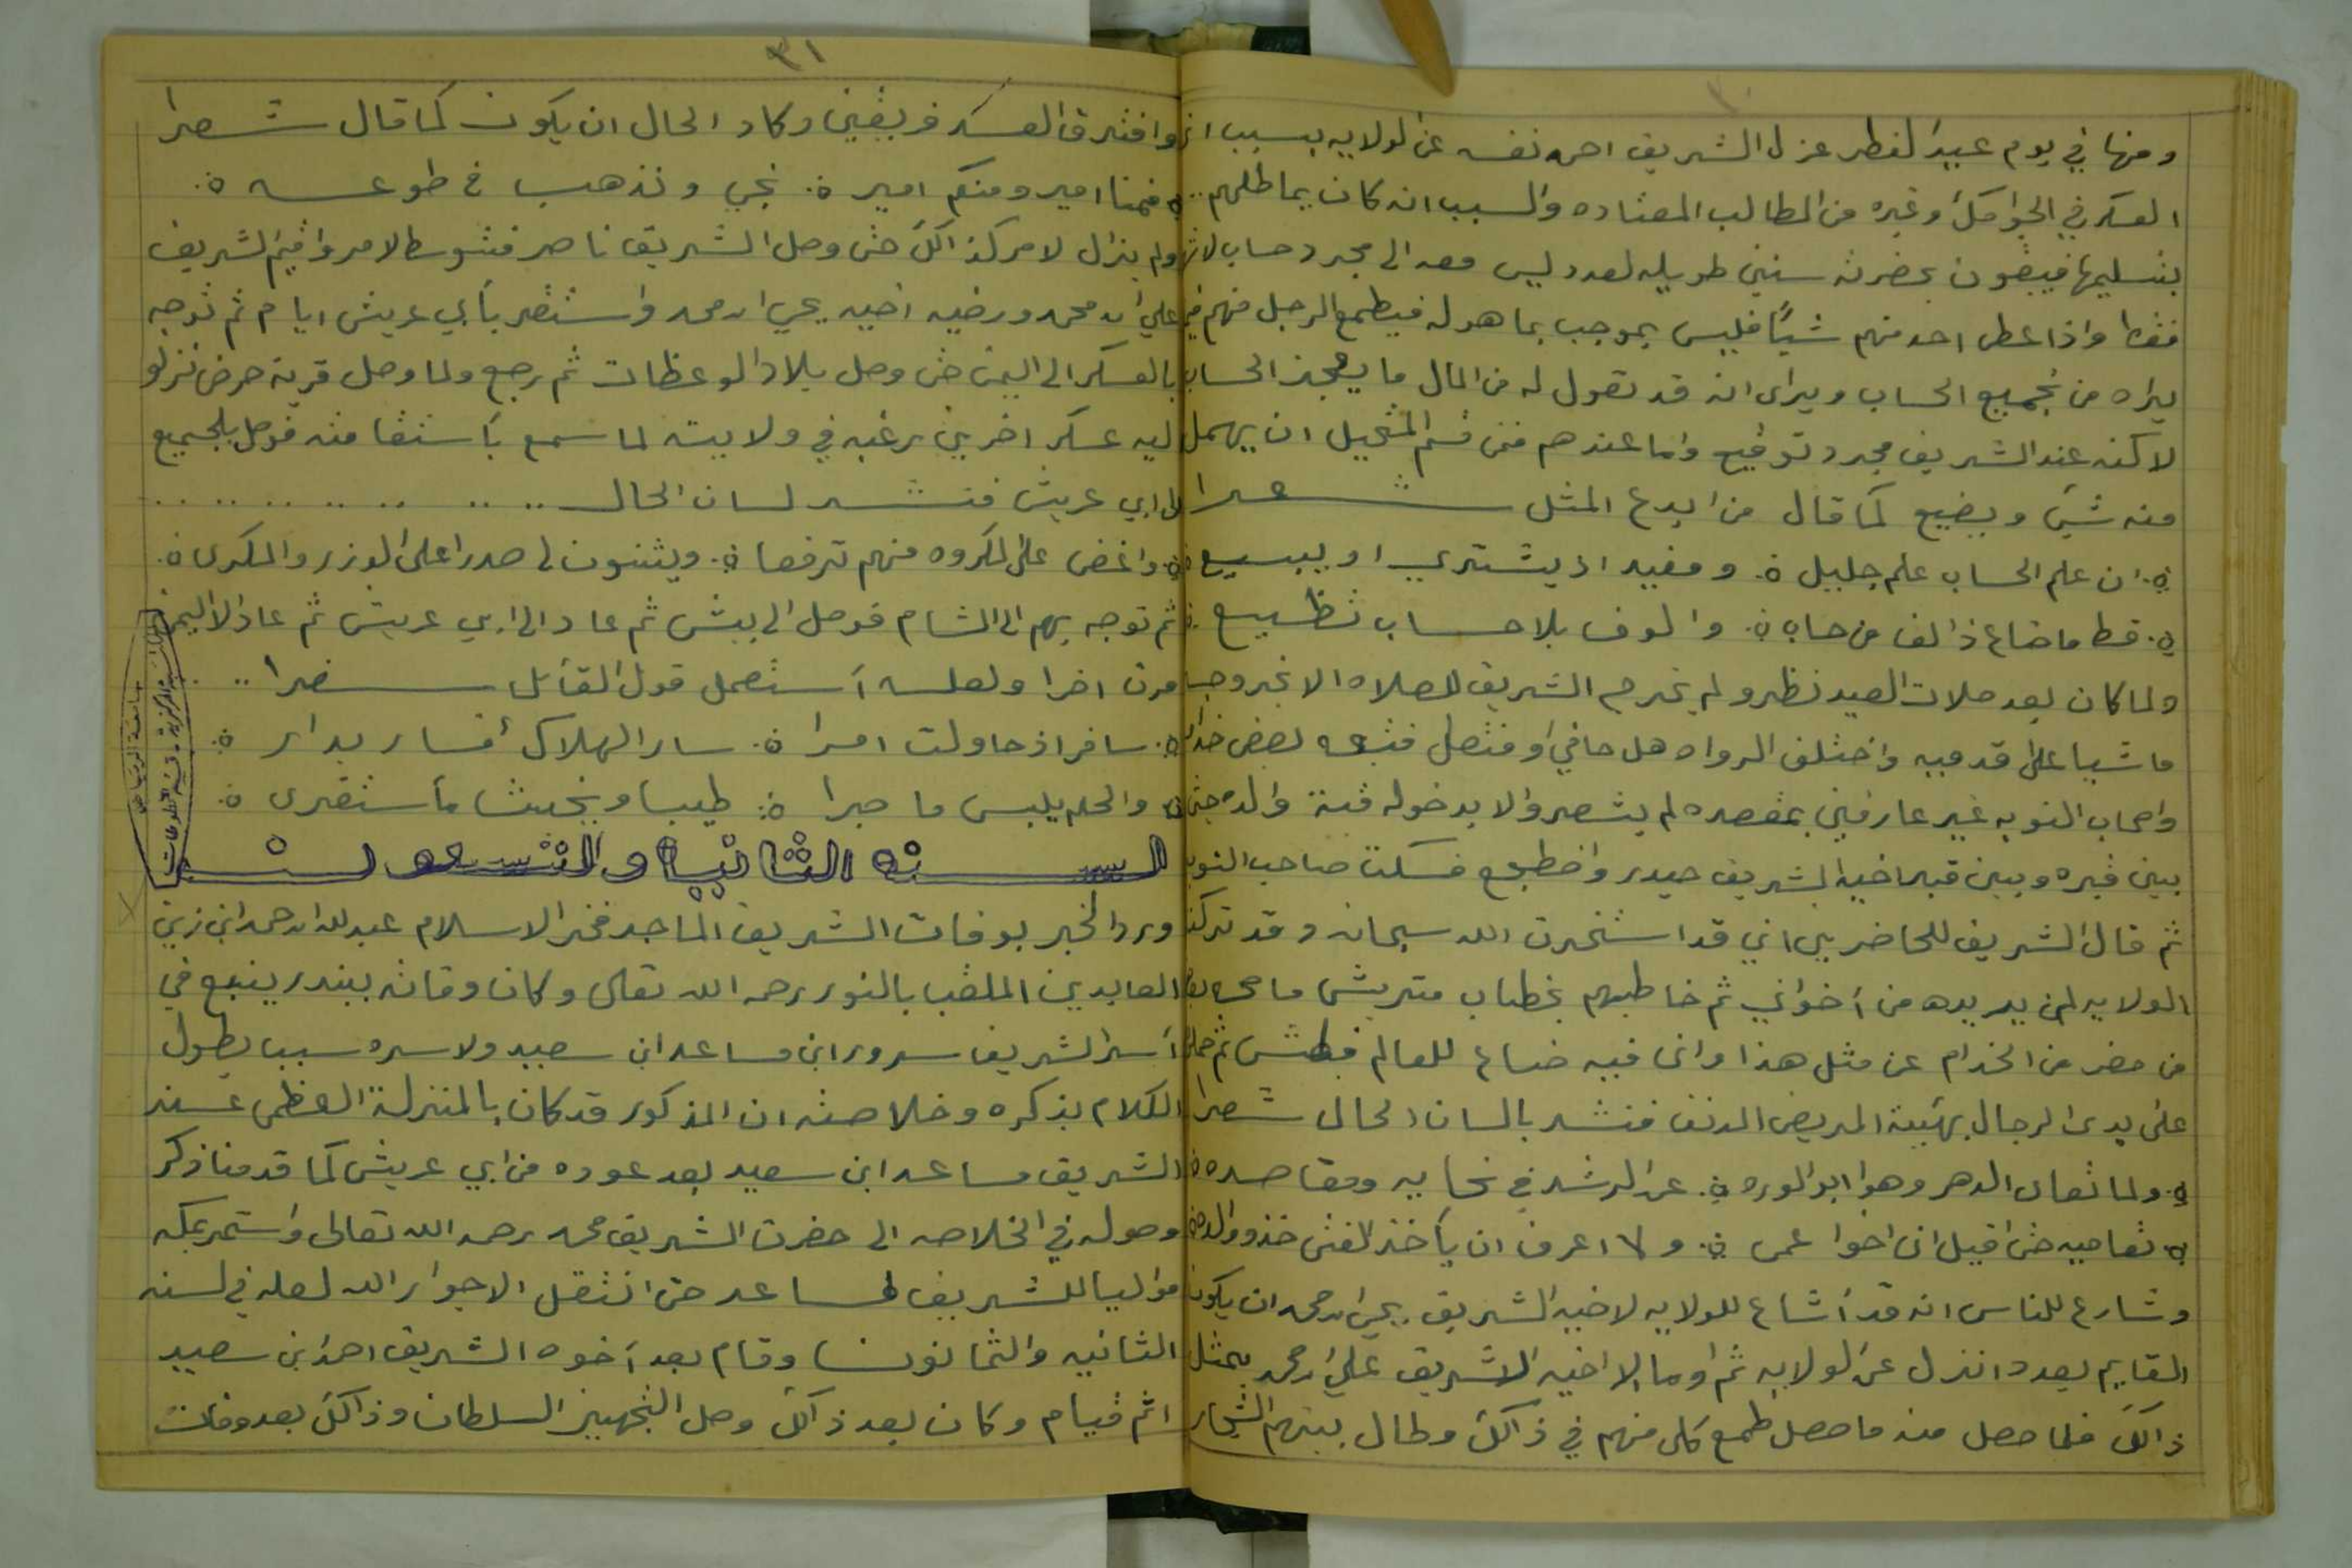 ومنها في يوم عيد الفطر عزل الشريف احمد نفسه عن الولايه بسبب ان
العسكر في الجوامك وغيره من المطالب المعتاده والسبب انه كان يماطلهم
بتسليمها فيبقون بحضرته سنين طويله لعدد ليس معه الى مجرد حساب لاثم
فقط واذا عطى احد منهم شيًا فليس بموجب بما هو له فيطمع الرجل منهم فيما
يراه من تجميع الحساب ويرى انه قد تقول له من المال ما يعجز الحساب
لاكنه عند الشريف مجرد توقيع واما عندهم فمن قسم المثحيل ان يهمل
منه شي ويضيع كما قال من ابدع المثل شعرا
ان علم الحساب علم جليل ة ومفيد اذ يشتري او يبيع
قط ما ضاع ذالف من حساب ة والوف بلا حساب تضيع
ولما كان بعد صلات العيد نظر ولم يخرج الشريف للصلاه الا بخروجه
ماشيا على قدميه واختلف الرواه هل حافي او منتعل فتبعه بعض خدامه
واصحاب النوبه غير عارفين بمقصده لم يشعروا الا بدخوله قبة والده حتى
بين قبره وبين قبر اخيه الشريف حيدر واضطجع فسكت صاحب النوبه
ثم قال الشريف للحاضرين اني قد استخرت الله سبحانه وقد تركت
الولايه لمن يريده من آخواني ثم خاطبهم بخطاب
من حضر من الخدام عن مثل هذا وان فيه ضياع للعالم فبطش ثم حمل
على يدى الرجال بهيئة المريض المدنف فنشد بالسان الحال شعرا
ولما تعامى الدهر وهوا ابو الوره ة عن الرشد في نحايه ومقاصده
تعاميه حتى اقيل اني اخوا عمى ة ولا اعرف ان يأخذ الفتى خذو والده
وشارع للناس انه قد آشاع للولايه لاخيه الشريف يحيى ابن محمد ان يكون
القايم بعد وانزل عن الولايه ثم اوما الا اخيه الاشريف علي ابن محمد بمثل
ذالك فلما حصل منه ما حصل طمع كلى منهم في ذالك وطال بينهم الشجار
٣١
وافترق العسكر فريقين وكاد الحال ان يكون كما قال شعرا
فمنا امير ومنكم امير ة نجي ونذهب في طوعه ة
ولم يزال لامر كذالك حتى وصل الشريف ناصر فتوسط الامر واقيم الشريف
علي ابن محمد ورضيه اخيه يحي ابن محمد واستقر بأبي عريش ايام ثم توجه
بالعسكر الى اليمن حتى وصل بلاد الوعظات ثم رجع ولما وصل قرية حرض نزلو
ليه عسكر اخرين رغبه في ولايته لما سمع بأستقامته فوصل بلجميع
الى ابي عريش فنشد لسان الحال
واغض على المكروه منهم ترفعا ة ويثنون لي صدرا على الوزر والمكرى ة
ثم توجه بهم الى الشام فوصل الى بيش ثم عاد الى ابي عريش ثم عاد الا اليمن
مرت اخرا ولعله آستعمل قول القائل شعرا
سافر اذ حاولت امرا ة سار الهلاك أفسار بدار ة
والحلم يلبس ما جرا ة طيبا ويخبث مأستقرى ة
السنه الثانيا والتسعون
ورد الخبر بوفات الشريف الماجد فخر الاسلام عبدلله ابن احمد ابن زين
العابدين الملقب بالنور رحمه الله تعالى وكان وفاته ببندر ينبع في
آسر الشريف سرور ابن مساعد ابن سعيد ولاسره سبب يطول
الكلام بذكره وخلاصته ان المذكور قد كان بالمنزلة العظمى عند
الشريف مساعد ابن سعيد بعد عوده من ابي عريش كما قدمنا ذكر
وصوله في الخلاصه الى حضرت الشريف محمد رحمه الله تعالى واستمر بمكه
مواليا للشريف مساعد حتى انتقل الا جوار الله لعله في لسنه
الثانيه والثمانون وقام بعد آخوه الشريف احمد ابن سعيد
اثم قيام وكان بعد ذالك وصل التجهيز السلطان وذالك بعد وفات
جامعة الرياض
المكتبة المركزية - قسم المخطوطات